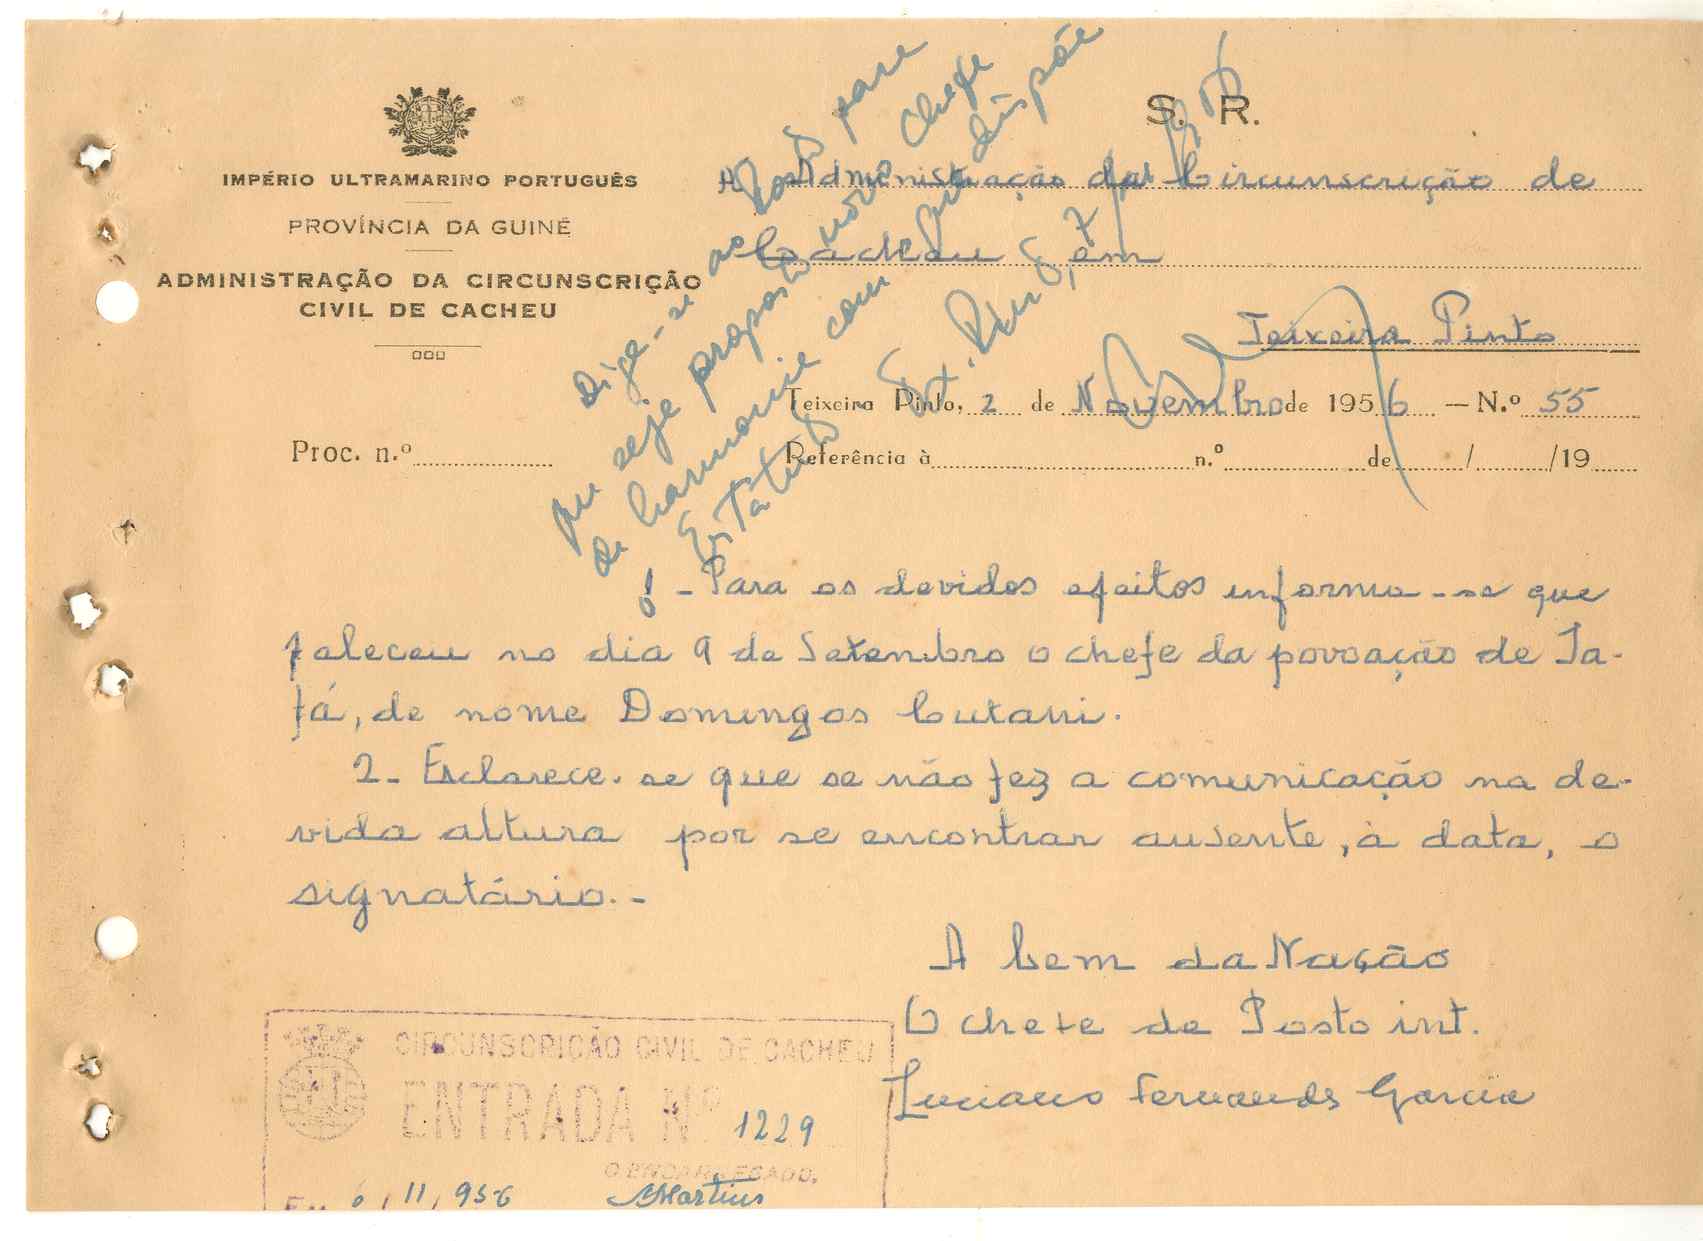 S. R.
IMPÉRIO ULTRAMARINO PORTUGUÊS
PROVÍNCIA DA GUINÉ
ADMINISTRAÇÃO DA CIRCUNSCRIÇÃO
CIVIL DE CACHEU
À Administração da Circunscrição de
Cacheu, em
Teixeira Pinto
Teixeira Pinto, 2 de Novembro de 1956 — N.º 55
Proc. n.º
Referência à n.º de / /19
Diga-se ao Posto para
que seja proposto novo chefe
de harmonia com que dispõe
Estatuto
1 - Para os devidos efeitos informa-se que
faleceu no dia 9 de Setembro o chefe da povoação de Ja-
fá, de nome Domingos Cutami.
2 - Esclarece-se que se não fez a comunicação na de-
vida altura por se encontrar ausente, à data, o
signatário.-
A bem da Nação
O chefe de Posto int.
Luciano Fernandes Garcia
CIRCUNSCRIÇÃO CIVIL DE CACHEU
ENTRADA Nº 1229
O ENCARREGADO,
Em 6/11/956 Martins